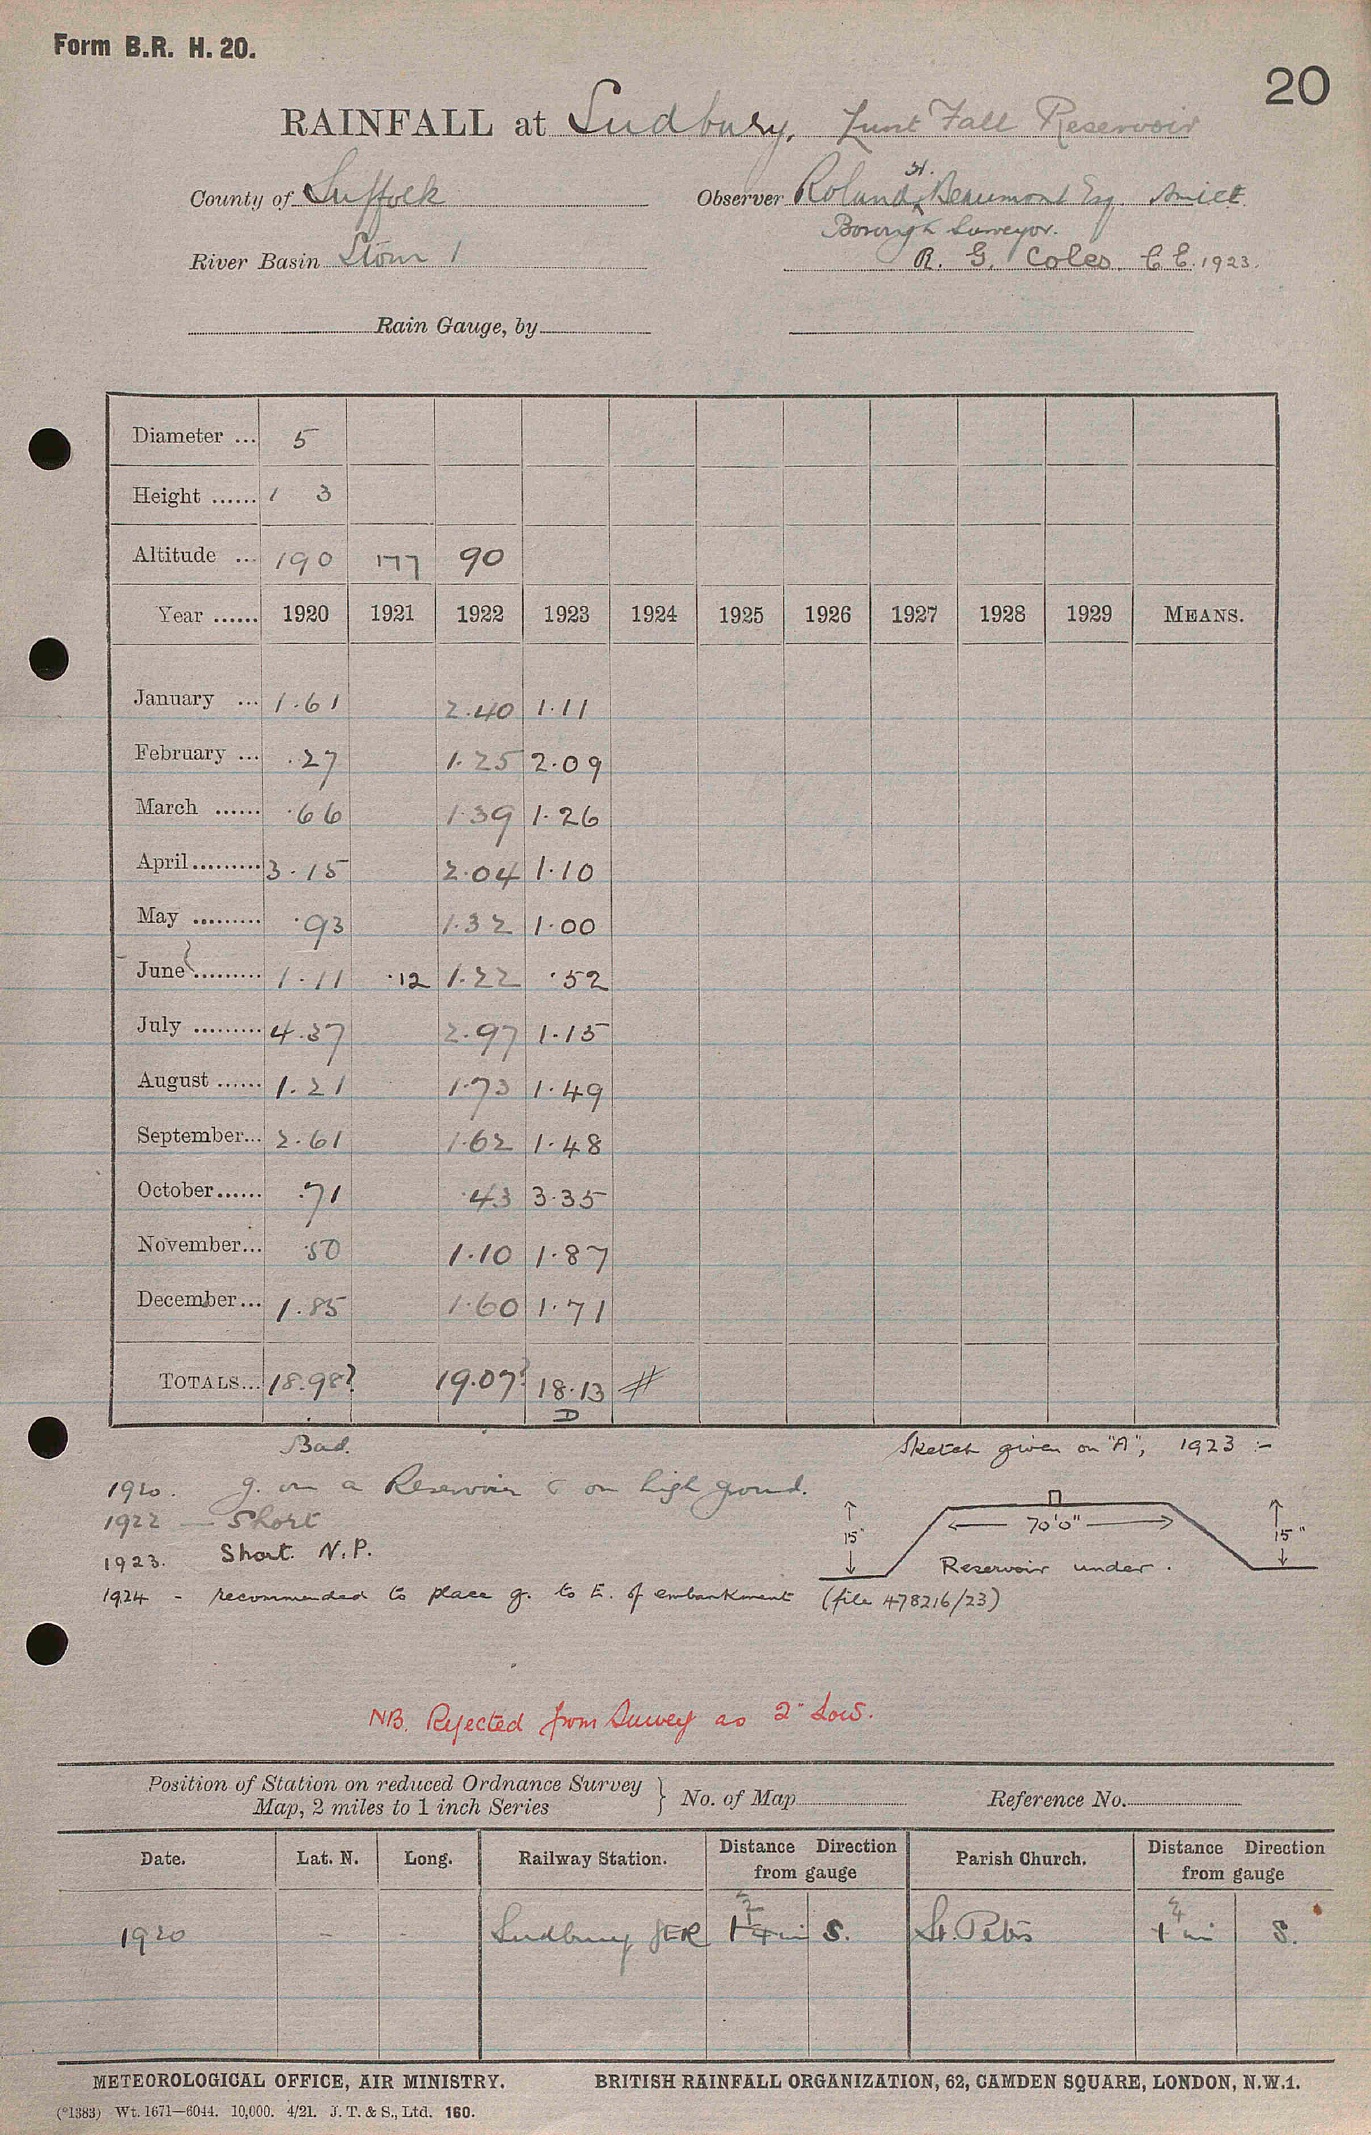 Form B.R. H. 20.
20
RAINFALL at Sudbury, Fall Reservoir
County of Suffolk
Observer Roland H. Beaumont Esq.
Borough Surveyor.
River Basin Stour 1
R. G. Coles C.E. 1923.
Rain Gauge, by
Diameter ... 5
Height ...... 1 3
Altitude ... 190 177 90
Year ...... 1920 1921 1922 1923 1924 1925 1926 1927 1928 1929 MEANS.
January ... 1.61 2.40 1.11
February ... .27 1.25 2.09
March ...... .66 1.39 1.26
April......... 3.15 2.04 1.10
May ......... .93 1.32 1.00
June ......... 1.11 .12 1.22 .52
July ......... 4.37 2.97 1.15
August ...... 1.21 1.73 1.49
September... 2.61 1.62 1.48
October...... .71 .43 3.35
November... .50 1.10 1.87
December... 1.85 1.60 1.71
TOTALS... 18.98? 19.07? 18.13 #
D
Bad.
Sketch given on "A", 1923 :-
1920. g. on a Reservoir & on high ground.
1922 — Short
15" 70'0" 15"
1923. Short. N.P.
Reservoir under.
1924 - recommended to place g. to E. of embankment (file 478216/23)
NB. Rejected from Survey as 2" Low.
Position of Station on reduced Ordnance Survey
Map, 2 miles to 1 inch Series } No. of Map Reference No.
Date. Lat. N. Long. Railway Station. Distance Direction from gauge Parish Church. Distance Direction from gauge
1920 - - Sudbury GER S. St. Peters S.
METEOROLOGICAL OFFICE, AIR MINISTRY. BRITISH RAINFALL ORGANIZATION, 62, CAMDEN SQUARE, LONDON, N.W.1.
(*1383) Wt. 1671—6044. 10,000. 4/21. J. T. & S., Ltd. 160.